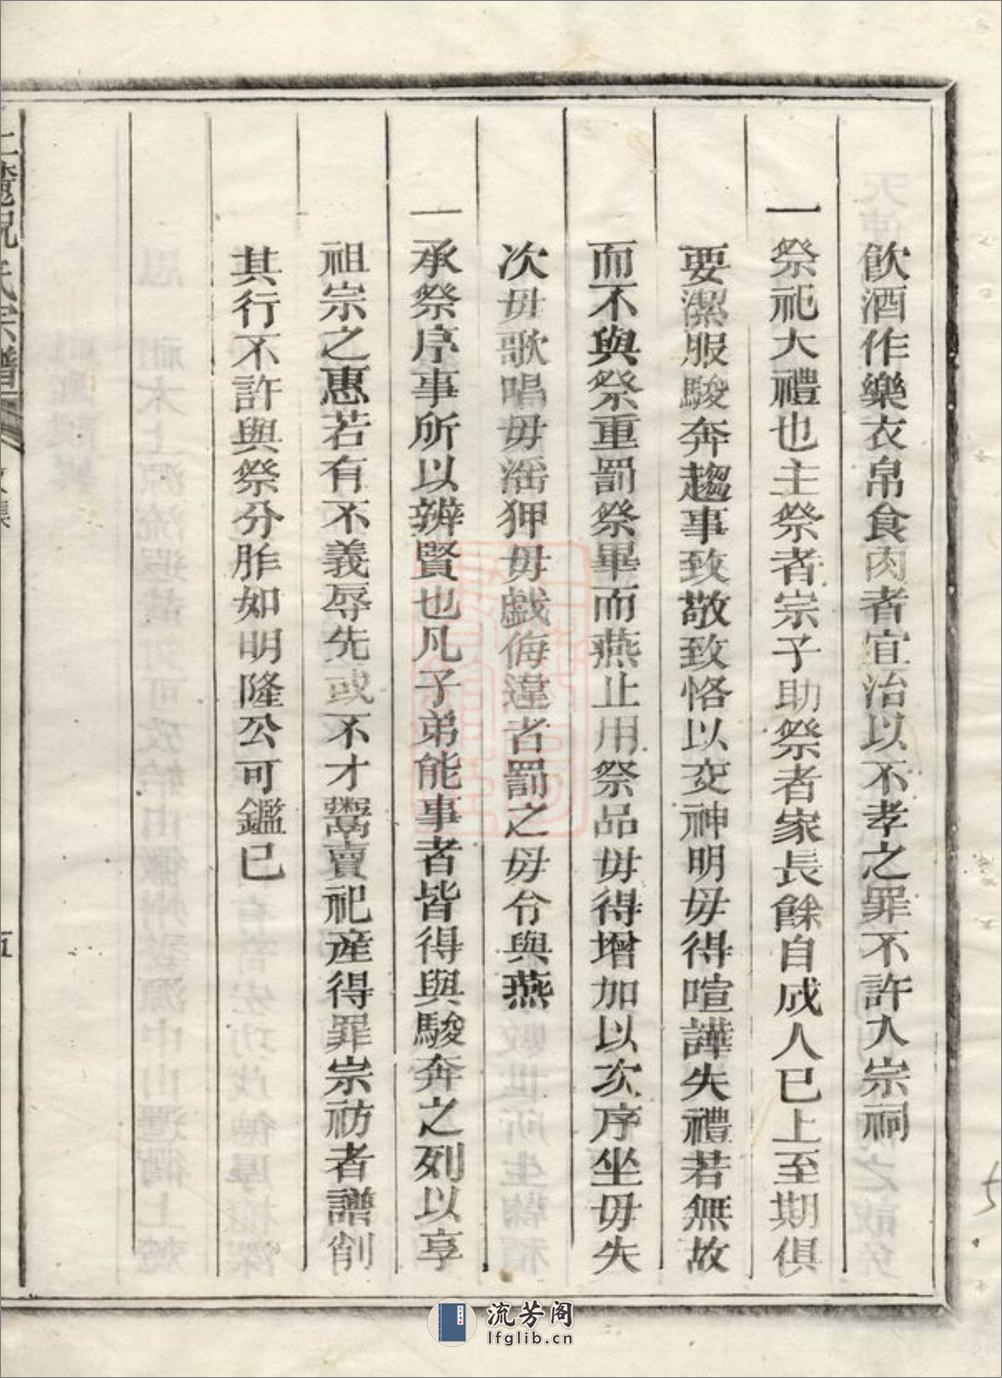 飲酒作樂衣帛食肉者宜治以不孝之罪不許入宗祠
一祭祀大禮也主祭者宗子助祭者家長餘自成人已上至期俱
要潔服駿奔趨事致敬致恪以交神明毋得喧譁失禮若無故
而不與祭重罰祭畢而燕止用祭品毋得增加以次序坐毋失
次毋歌唱毋滛狎毋戯侮違者罰之毋令與燕
一承祭序事所以辨賢也凡子弟能事者皆得與駿奔之列以享
祖宗之惠若有不義辱先或不才鬻賣祀產得罪宗祊者譜削
其行不許與祭分胙如明隆公可鑑已
氏宗譜
五
流芳阁
lfglib.cn